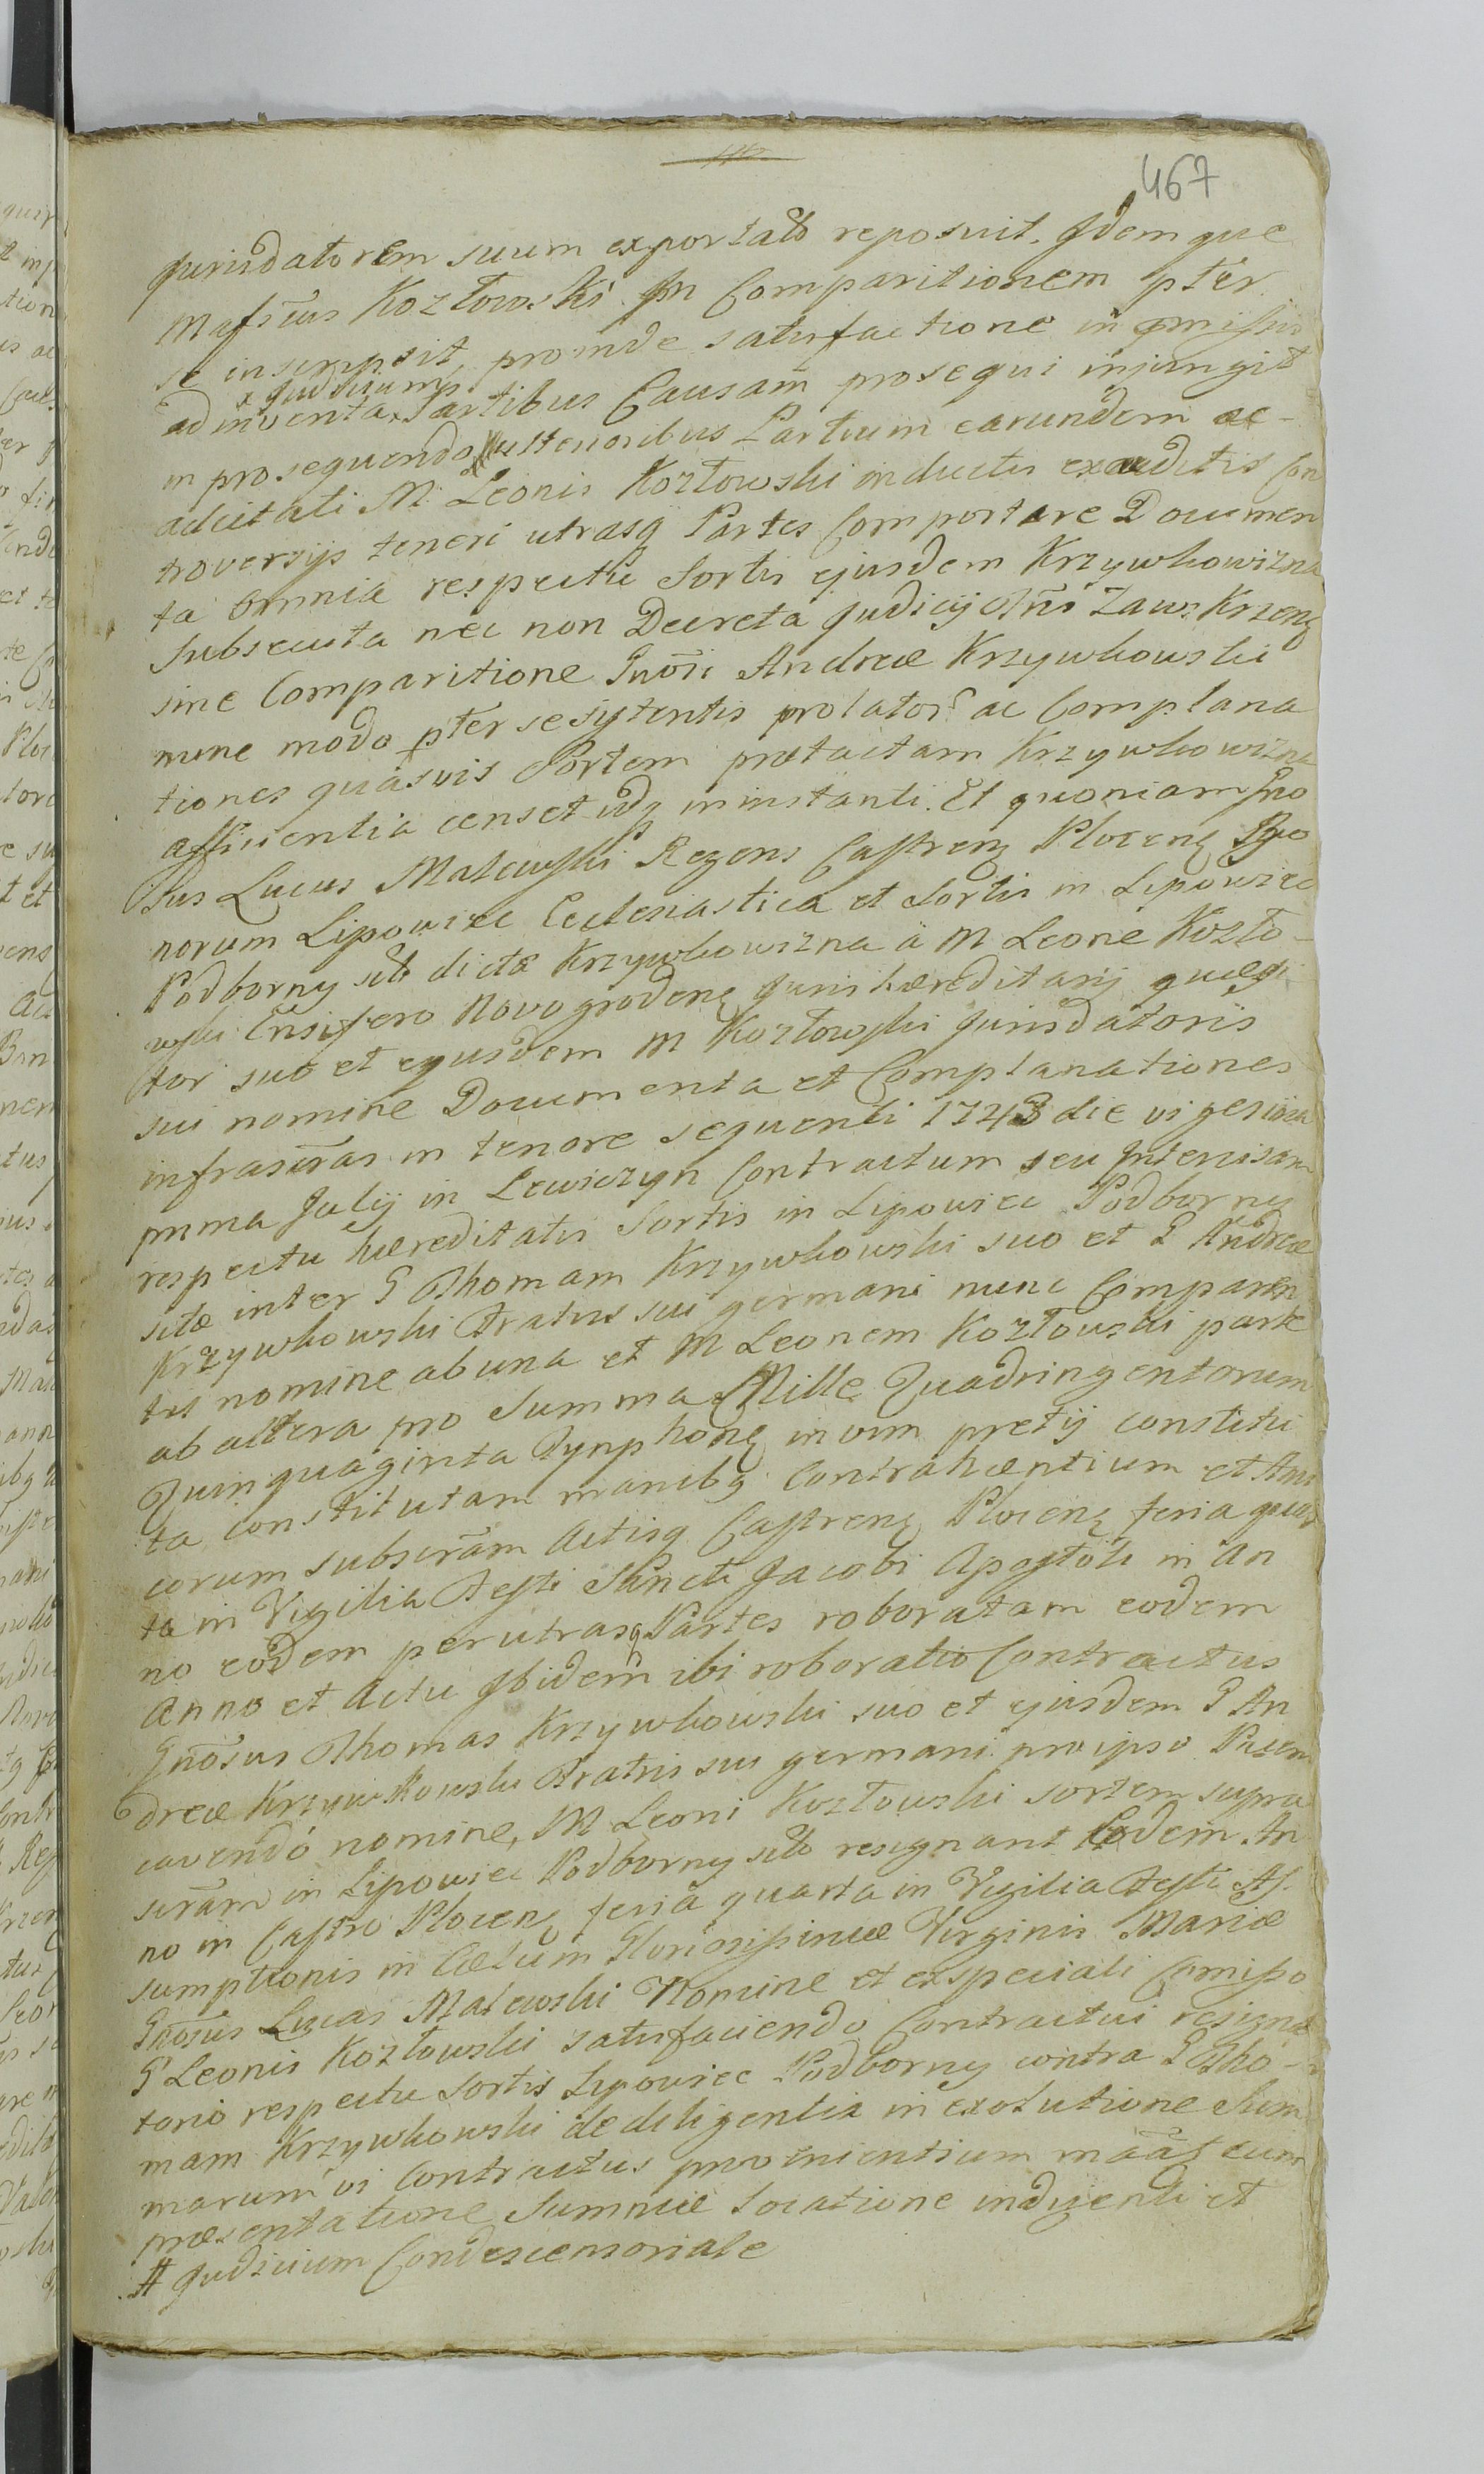 467
Jurisdatorem suum exportato reposuit. Idemque
Mafscus Kozłowski In Comparitionem pter
se inscripsit, proinde satisfactione in præmissis
x Judicium
adinventa x Partibus Causam prosequi injungit
in prosequendo ulterioribus Partium earundem ac
adcitati M. Leonis Kozłowski inductis exauditis Con
troversijs teneri utrasq Partes Comportare Documen
ta omnia respectu Sortis ejusdem Krzywkowizna
Subsecuta nec non Decreta Judicij Otñi Zaws Krzenę
sine Comparitione Gnosi Andreæ Krzywkowski
nunc modo pter se sistentis prolator. ac Complana
tiones quasvis Sortem prætactam Krzywkowizna
afficientia censet idq in instanti. Et quoniam Gno
sus Lucas Malewski Regens Castrenę Plocenę Bo
norum Lipowiec Ecclesiastica et Sortis in Lipowiec
Podborny sito dictæ Krzywkowizna à M Leone Kozło-
wski Ensifero Novogrodenę Juris hæreditarij quæsi
tor suo et ejusdem M Kozłowski Jurisdatoris
sui nomine Documenta et Complanationes
infrascras in tenore sequenti 1743 die vigesima
prima Julij in Lewiczyn Contractum seu Intercisam
respectu hæreditatis Sortis in Lipowiec Podborny
sitæ inter G Thomam Krzywkowski suo et G Andreæ
Krzywkowski Fratris sui germani nunc Comparen
tis nomine ab una et M Leonem Kozłowski parte
ab altera pro Summa Mille Quadringentorum
Quinquaginta Tynphonę in vim pretij constitu
ta constitutam manibq Contrahentium et Ami
corum subscram Actisq Castrenę Plocenę feria quar
ta in Vigilia Festi Sancti Jacobi Apostoli in An
no eodem per utrasq Partes roboratam eodem
Anno et Actu Ibidem ibi roboratio Contractus
Gnosus Thomas Krzywkowski suo et ejusdem G An
dreæ Krzywkowski Fratris sui germani pro ipso
cavendo nomine, M Leoni Kozłowski sortem supra
scram in Lipowiec Podborny sito resignant Eodem An
no in Castro Plocenę feria quarta in Vigilia Festi As
sumptionis in Cœlum Gloriosissimæ Virginis Mariæ
Gnosus Lucas Malewski Nomine et ex speciali Commisso
G Leonis Kozłowski satisfaciendo Contractui resigna
torio respectu Sortis Lipowiec Podborny contra G Tho-
mam Krzywkowski de diligentia in exolutione Sum
marum vi Contractus provenientium
præsentatione Summæ Locatione indigenti et
# Judicium Condescensoriale